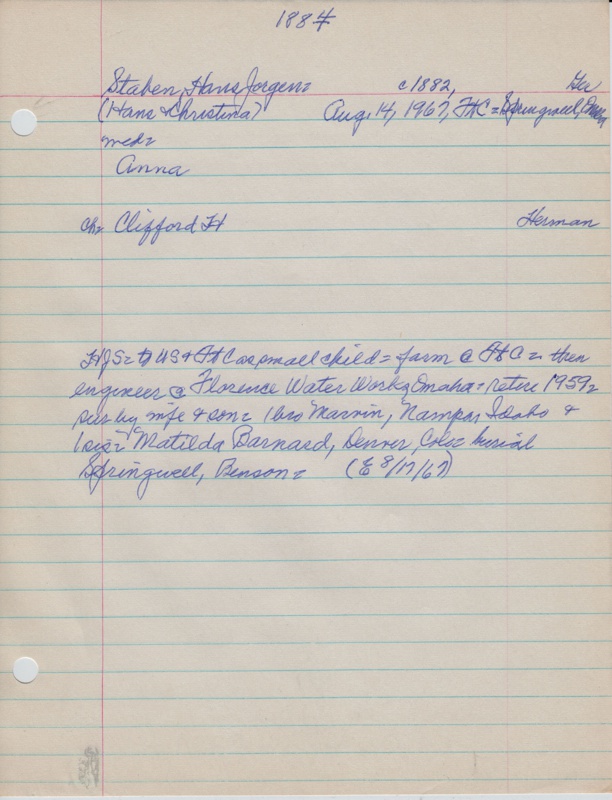 1884
Staben, Hans Jorgen= c1882, Ger
(Hans & Christina) Aug. 14, 1967, FtC = Springwell, Omaha
med=
Anna
Ch= Clifford H Herman
HJS= to US & FtC as small child = farm @ FtC = then
engineer @ Florence Water Works, Omaha = retire 1959=
sur by wife & son = 1 bro Marvin, Nampa, Idaho &
1 sis= Matilda Barnard, Denver, Colo = burial
Springwell, Benson= (E 8/17/67)